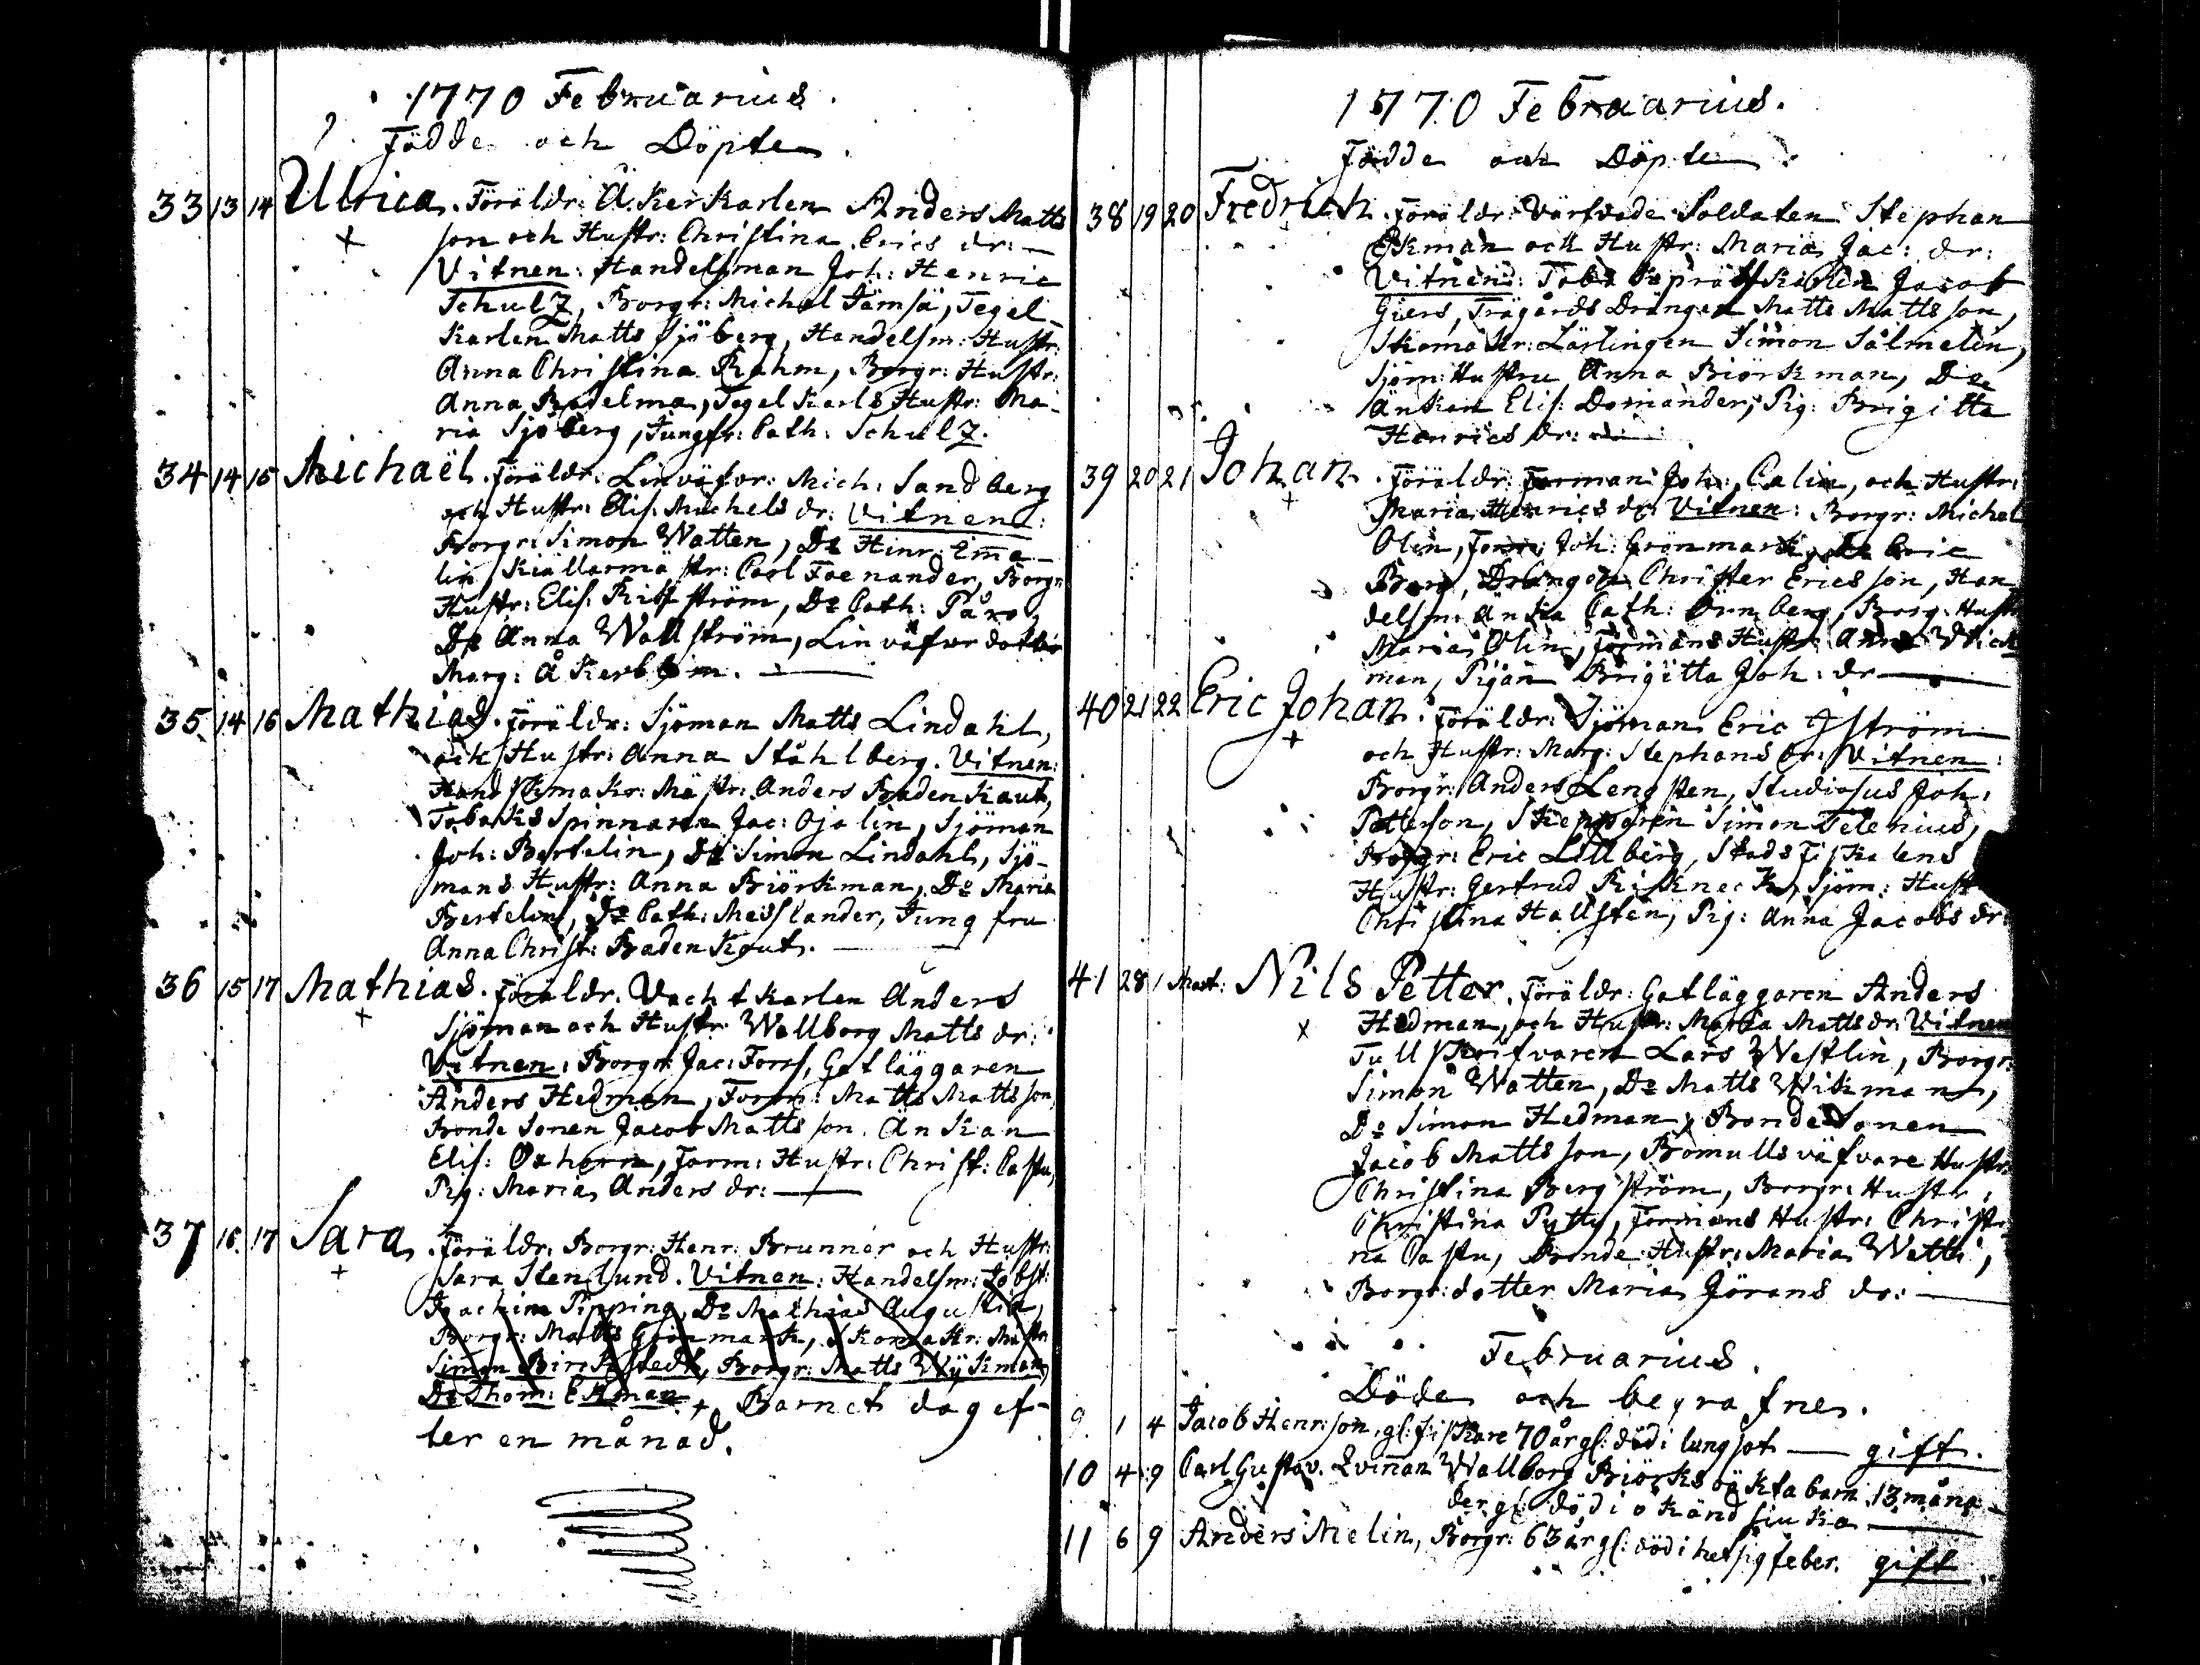 1770 Februarius.
Födde och Döpte.
33 13 14 Ulrica. Föräldr: Åkerkarlen Anders Matts
son och Hustr: Christina Erics dr:
Vitnen: Handelsman Joh: Henric
Schulz, Borgr: Michel Jämsä, Tegel-
karlen Matts Sjöberg, Handelsm: Hustr:
Anna Christina Rahm, Borgr: Hustr:
Anna Redelma, Tegelkarls Hustr: Ma-
ria Sjöberg, Jungfr: Cath: Schulz.
34 14 15 Michaël. Föräldr: Linväfvr: Mich: Sandberg
och Hustr: Elis: Michels dr: Vitnen:
Borgr: Simon Watten, Do Hinr: Ema-
lin, Kiällarmästr: Carl Foenander, Borgr:
Hustr: Elis: Ritström, Do Cath: Påro,
Do Anna Wallström, Linväfvar dotter
Marg: Åkerblom.
35 14 16 Mathias. Föräldr: Sjöman Matts Lindahl,
och Hustr: Anna Ståhlberg. Vitnen:
Handskmakr: Mästr: Anders Badenkaut,
Tobaks Spinnaren Jac: Ojalin, Sjöman
Joh: Bertelin, Do Simon Lindahl, Sjö-
mans Hustr: Anna Biörkman, Do Maria
Bertelin, Do Cath: Messlander, Jungfru
Anna Christ: Badenkaut.
36 15 17 Mathias. Föräldr. Vachtkarlen Anders
Sjöman och Hustr. Wallborg Matts dr:
Vitnen: Borgr: Jac: Forss, Gatläggaren
Anders Hedman, Form: Matts Mattsson,
Bonde Sonen Jacob Mattsson. Änkan
Elis: Oxhorn, Form: Hustr: Christ: Castu,
Pig: Maria Anders dr:
37 16 17 Sara. Föräldr: Borgr: Henr: Brunner och Hustr:
Sara Stenlund. Vitnen: Handelsm: Jobst:
Joachim Pipping, Do Mathias Augustin,
Borgr: Matts Grönmark, Skomakr: Mästr:
Simon Birckstedt, Borgr: Matts Wykman,
Do Thom: Ekman. + Barnet dog ef-
ter en månad.
1770 Februarius.
Födde och Döpte.
38 19 20 Fredrich. Föräldr: Värfvade Soldaten Stephan
Ekman och Hustr: Maria Jac: dr:
Vitnen: Jacob
Giers, Trägårds Drängen Matts Mattsson,
Skomakr: Lärlingen Simon Salmelin,
Sjöm: Hustru Anna Biörkman, Do
Änkan Elis: Domander, Pig: Brigitta
Henrics dr:
39 20 21 Johan. Föräldr: Forman Joh: Calin, och Hustr:
Maria Henrics dr: Vitnen: Borgr: Michel
Olin, Form: Joh: Grönmark, Do Eric
Berg, Drängen Christer Ericsson, Han
delsm: Änka Cath: Örnberg, Borg: Hustr:
Maria Olin, Formans Hustr: Anna Wick
man, Pigan Brigitta Joh: dr
40 21 22 Eric Johan. Föräldr: Sjöman Eric Iström
och Hustr: Marg: Stephans dr: Vitnen:
Borgr: Anders Lengsten, Studiosus Joh:
Petterson, Skepparen Simon Telenius,
Borgr: Eric Lillberg, Stads Fiskalens
Hustr: Gertrud Kiskneck, Sjöm: Hustr
Christina Hallsten, Pig: Anna Jacobs dr:
41 28 1 Mart: Nils Petter. Föräldr: Gatläggaren Anders
Hedman, och Hustr: Maria Matts dr: Vitnen
Tullskrifvaren Lars Westlin, Borgr:
Simon Watten, Do Matts Wikman,
Do Simon Hedman, Bonde Sonen
Jacob Mattsson, Bomullsväfvare Hustr:
Christina Bergström, Borgr: Hustr:
Christina Pytty, Formans Hustr: Christi-
na Castu, Bonde Hustr: Maria Watti,
Borgr: dotter Maria Jörans dr:
Februarius.
Döde och begrafne.
9. 1 4 Jacob Henrsson, gl: fiskare 70 år gl: död i lungsot gift.
10 4 9 Carl Gustav. Qvinnan Wallborg Biörks oäkta barn 13 måna-
der gl: död i okänd siuka
11 6 9 Anders Melin, Borgr: 63 år gl: död i hetsig feber. gift